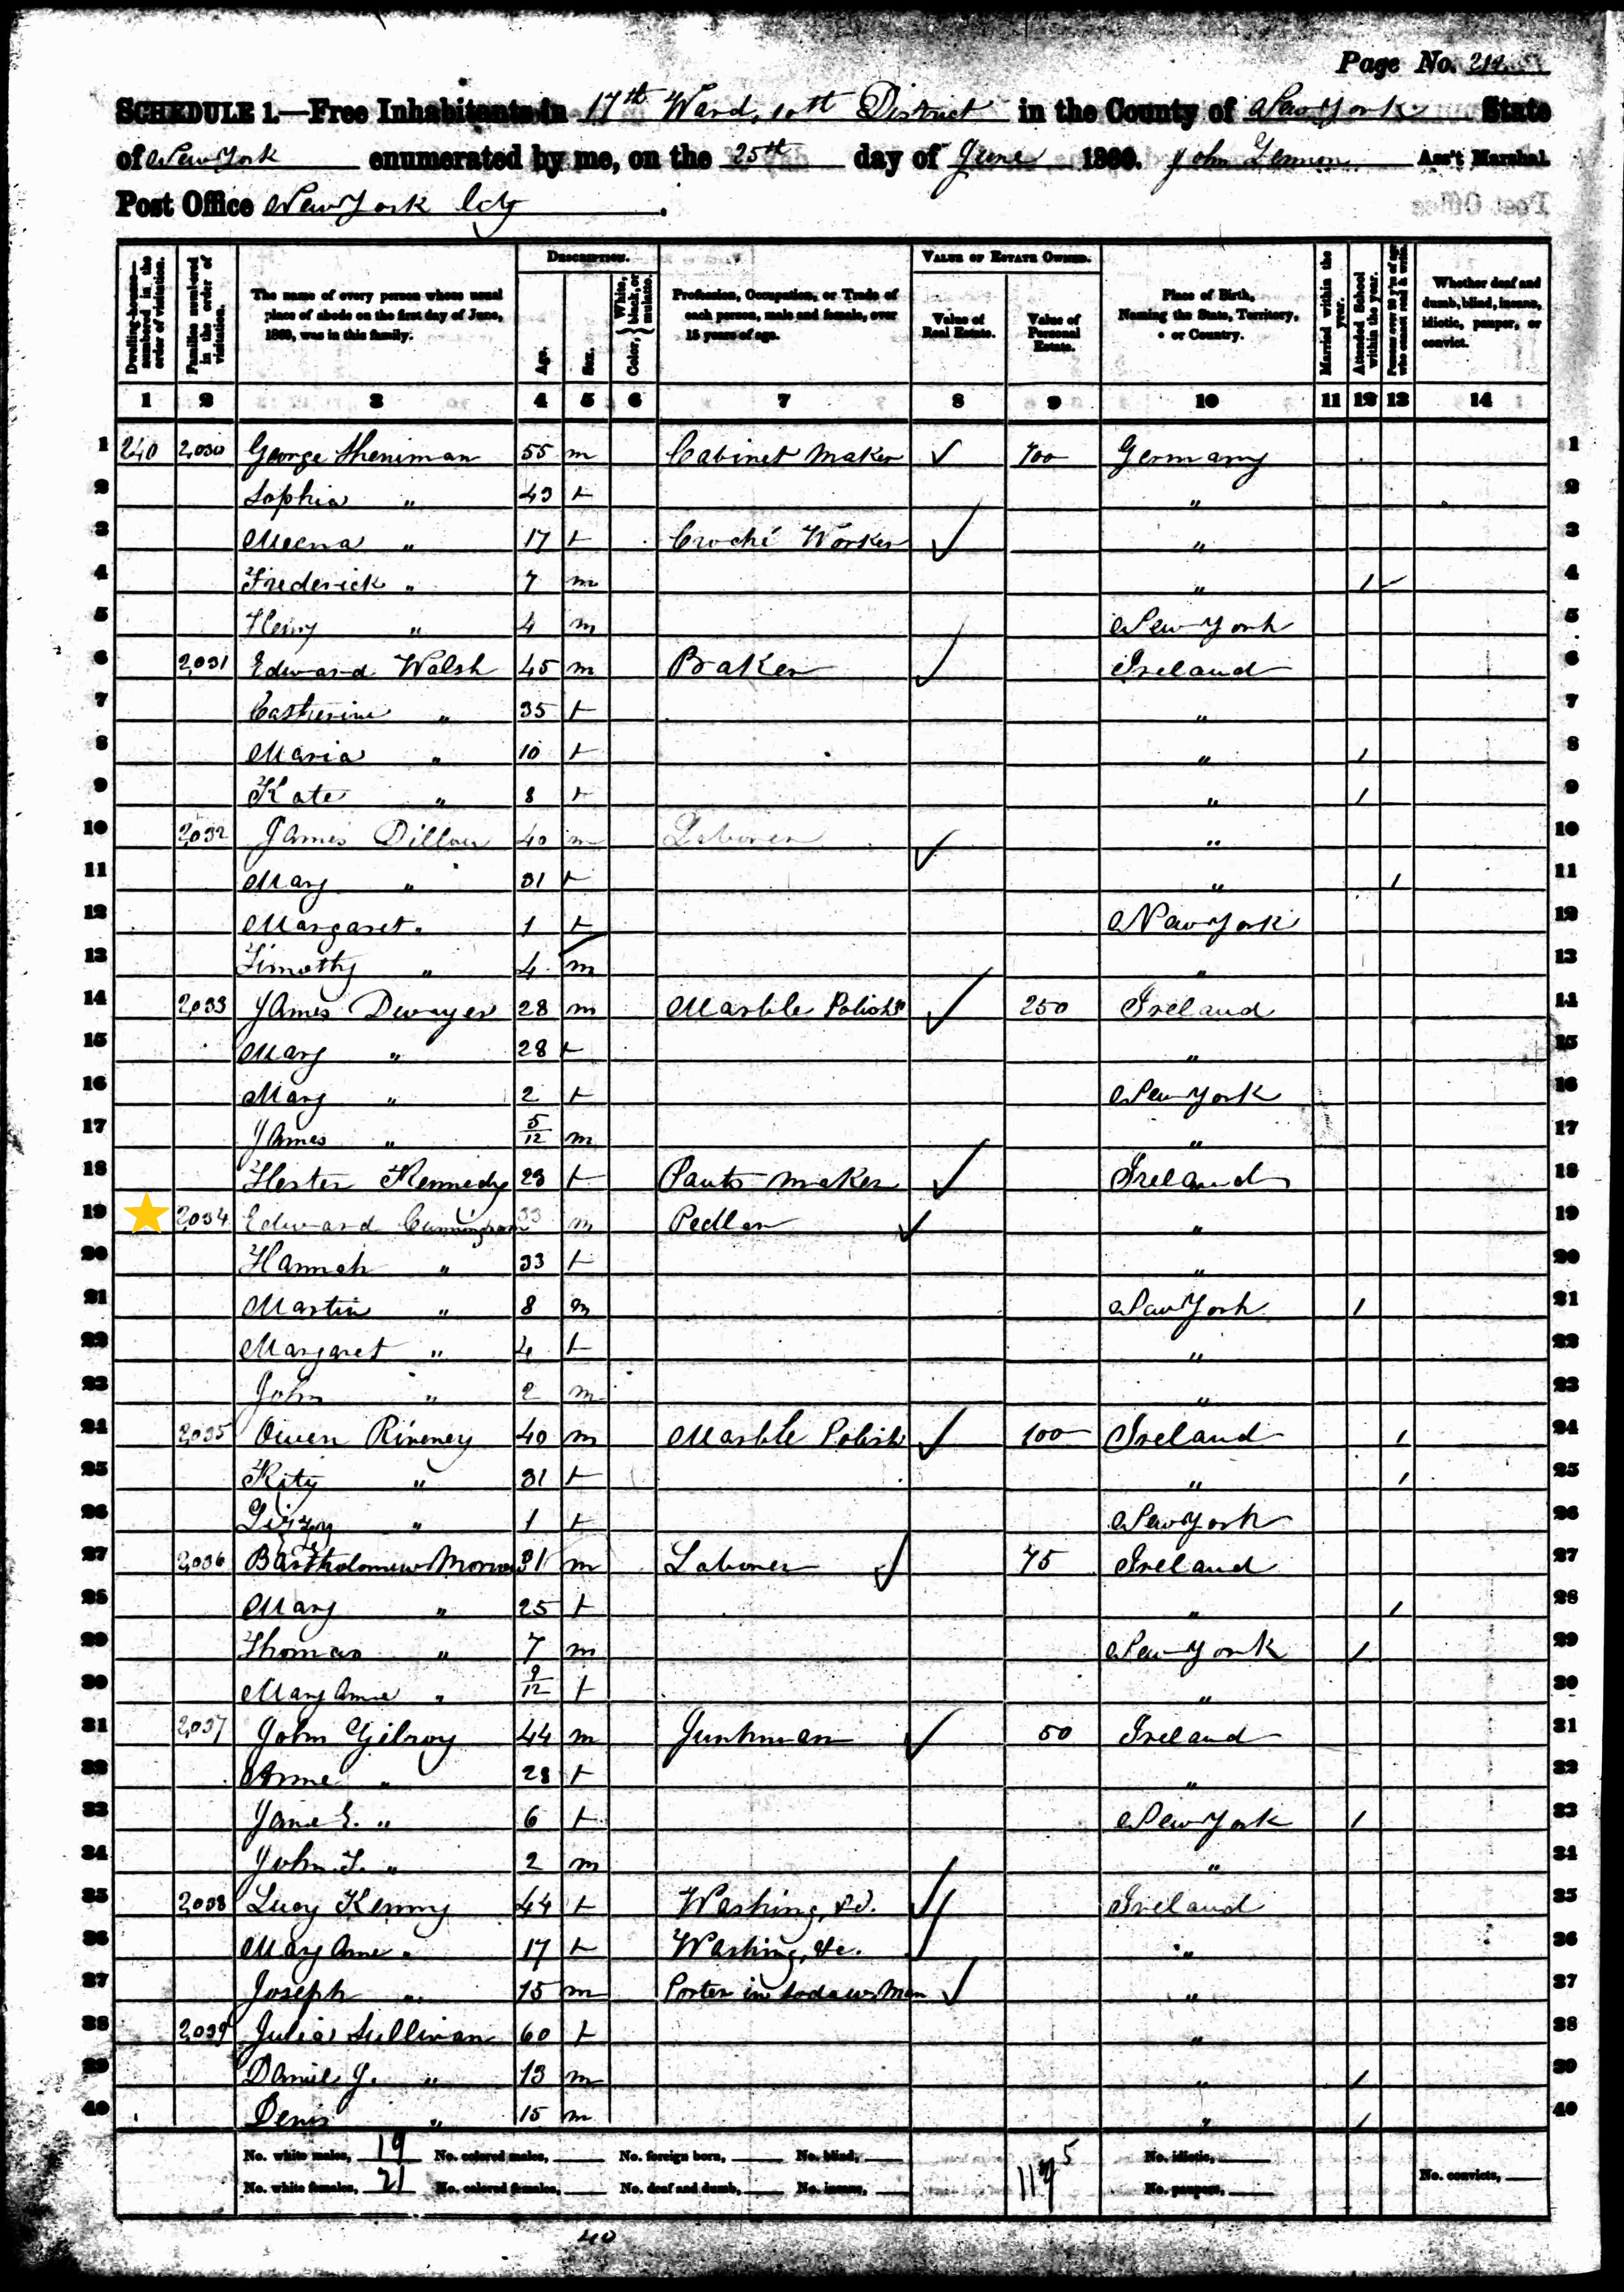 Page No. 212
SCHEDULE 1.—Free Inhabitants in 17th Ward, 10th District in the County of New York State
of New York enumerated by me, on the 25th day of June 1860. John Lennon Ass't Marshal.
Post Office New York City.
Dwelling-houses—numbered in the order of visitation. Families numbered in the order of visitation. The name of every person whose usual place of abode on the first day of June, 1860, was in this family. DESCRIPTION. Age. Sex. Color, { White, black, or mulatto. Profession, Occupation, or Trade of each person, male and female, over 15 years of age. VALUE OF ESTATE OWNED. Value of Real Estate. Value of Personal Estate. Place of Birth, Naming the State, Territory, or Country. Married within the year. Attended School within the year. Persons over 20 y'rs of age who cannot read & write. Whether deaf and dumb, blind, insane, idiotic, pauper, or convict.
1 2 3 4 5 6 7 8 9 10 11 12 13 14
1 240 2,030 George Sheniman 55 m Cabinet Maker ✓ 700 Germany 1
2 Sophia " 43 f " 2
3 Meena " 17 f Croché Worker ✓ " 3
4 Frederick " 7 m " / 4
5 Henry " 4 m New York 5
6 2,031 Edward Walsh 45 m Baker ✓ Ireland 6
7 Catherine " 35 f " 7
8 Maria " 10 f " / 8
9 Kate " 8 f " / 9
10 2,032 James Dillon 40 m Laborer ✓ " 10
11 Mary " 31 f " / 11
12 Margaret " 1 f New York 12
13 Timothy " 4 m " 13
14 2,033 James Dwyer 28 m Marble Polishr ✓ 250 Ireland 14
15 Mary " 28 f " 15
16 Mary " 2 f New York 16
17 James " 5/12 m " 17
18 Hester Kennedy 23 f Pants Maker ✓ Ireland 18
19 2,034 Edward Cunningham 33 m Pedler ✓ " 19
20 Hannah " 33 f " 20
21 Martin " 8 m New York / 21
22 Margaret " 4 f " 22
23 John " 2 m " 23
24 2,035 Owen Riveney 40 m Marble Polish ✓ 100 Ireland / 24
25 Kity " 31 f " / 25
26 Lizzy " 1 f New York 26
27 2,036 Bartholomew 31 m Laborer ✓ 75 Ireland 27
28 Mary " 25 f " / 28
29 Thomas " 7 m New York / 29
30 Mary Anne " 9/12 f " 30
31 2,037 John Gilroy 44 m Junkman ✓ 50 Ireland 31
32 Anne " 28 f " 32
33 Jane E. " 6 f New York / 33
34 John T. " 2 m " 34
35 2,038 Lucy Kenny 44 f Washing, &c. ✓ Ireland 35
36 Mary Anne " 17 f Washing, &c. " 36
37 Joseph " 15 m Porter in Soda w. Man ✓ " 37
38 2,039 Julia Sullivan 60 f " 38
39 Daniel J. " 13 m " / 39
40 Denis " 15 m " / 40
No. white males, 19 No. colored males, No. foreign born, No. blind, No. idiotic,
No. white females, 21 No. colored females, No. deaf and dumb, No. insane, 1175 No. paupers, No. convicts,
40